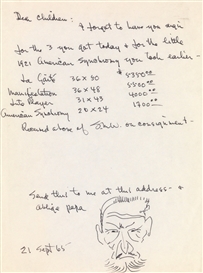 Dear Children: I forget to have you sign
for the 3 you got today & for the little
1921 American Symphony you took earlier -
La Gaité 36 x 30 $5350.00
Manifestation 36 x 48 5500.00
Into Prayer 31 x 43 4000.00
American Symphony 20 x 24 1700.00
Received above of on consignment -
Send this to me at this address - &
abide papa
21 Sept 65